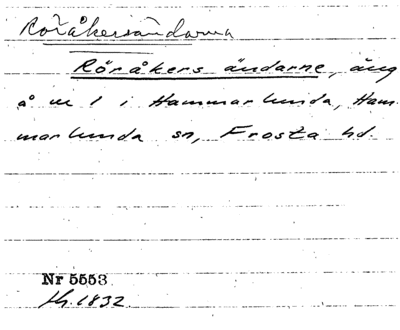 Röråkersändarna
Röråkers ändarne, äng
å nr 1 i Hammarlunda, Ham-
marlunda sn, Frosta hd.
Nr 5553
1832.